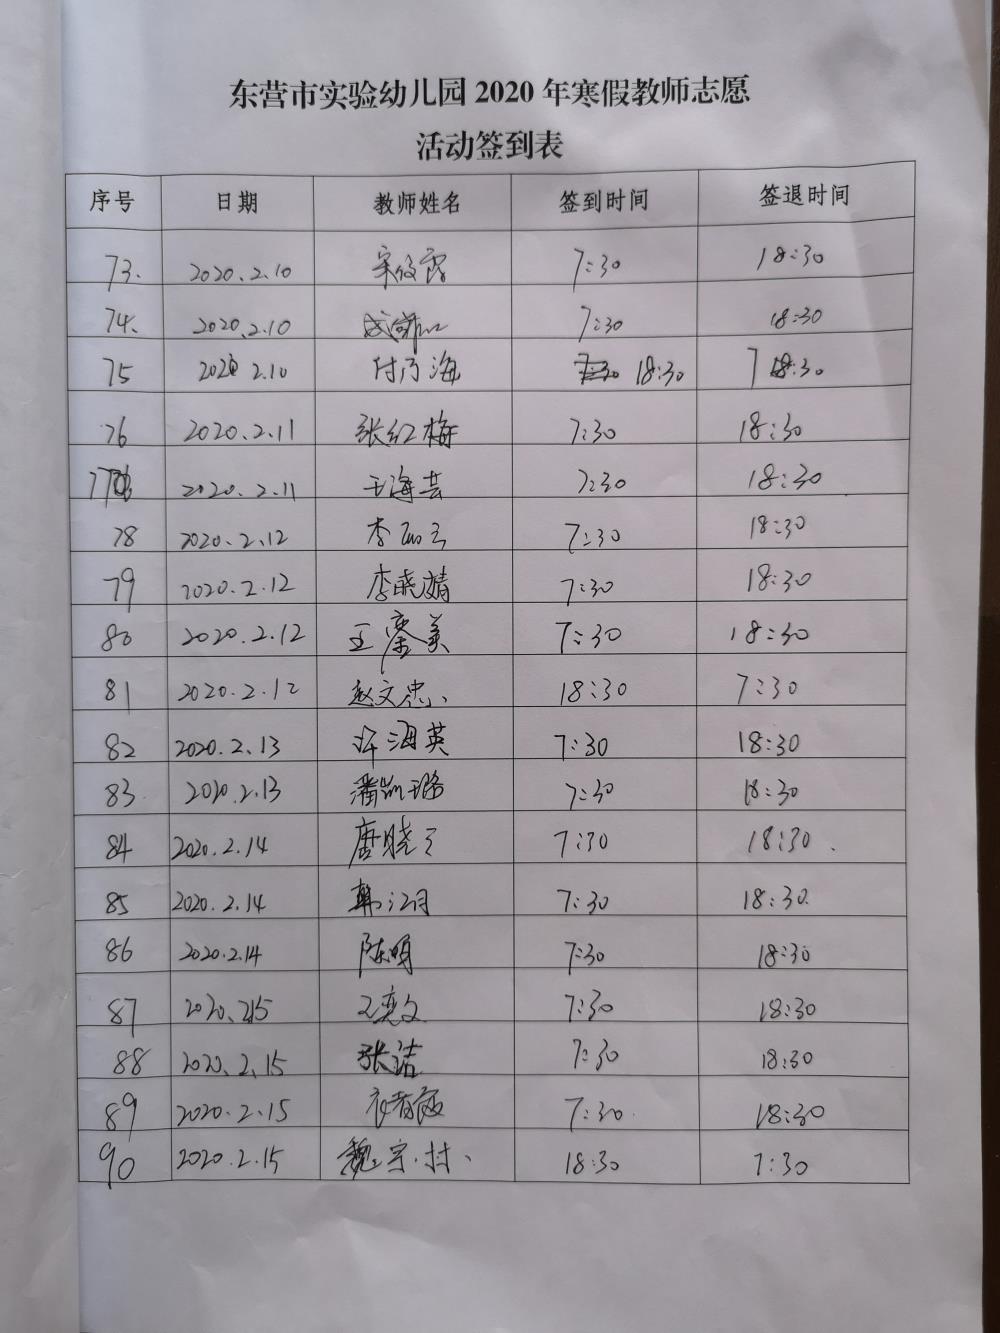 东营市实验幼儿园 2020 年寒假教师志愿
活动签到表
序号 日期 教师姓名 签到时间 签退时间
73. 2020.2.10 宋筱露 7:30 18:30
74. 2020.2.10 7:30 18:30
75 2020 2.10 付乃海 18:30 7:30
76 2020.2.11 张红梅 7:30 18:30
77 2020.2.11 王海芸 7:30 18:30
78 2020.2.12 7:30 18:30
79 2020.2.12 李晓婧 7:30 18:30
80 2020.2.12 王銮美 7:30 18:30
81 2020.2.12 赵文忠 18:30 7:30
82 2020.2.13 许海英 7:30 18:30
83 2020.2.13 潘凯璐 7:30 18:30
84 2020.2.14 唐晓 7:30 18:30.
85 2020.2.14 韩江月 7:30 18:30.
86 2020.2.14 陈明 7:30 18:30
87 2020.2.15 王奕文 7:30 18:30
88 2020.2.15 张洁 7:30 18:30
89 2020.2.15 7:30 18:30
90 2020.2.15 魏宗村 18:30 7:30